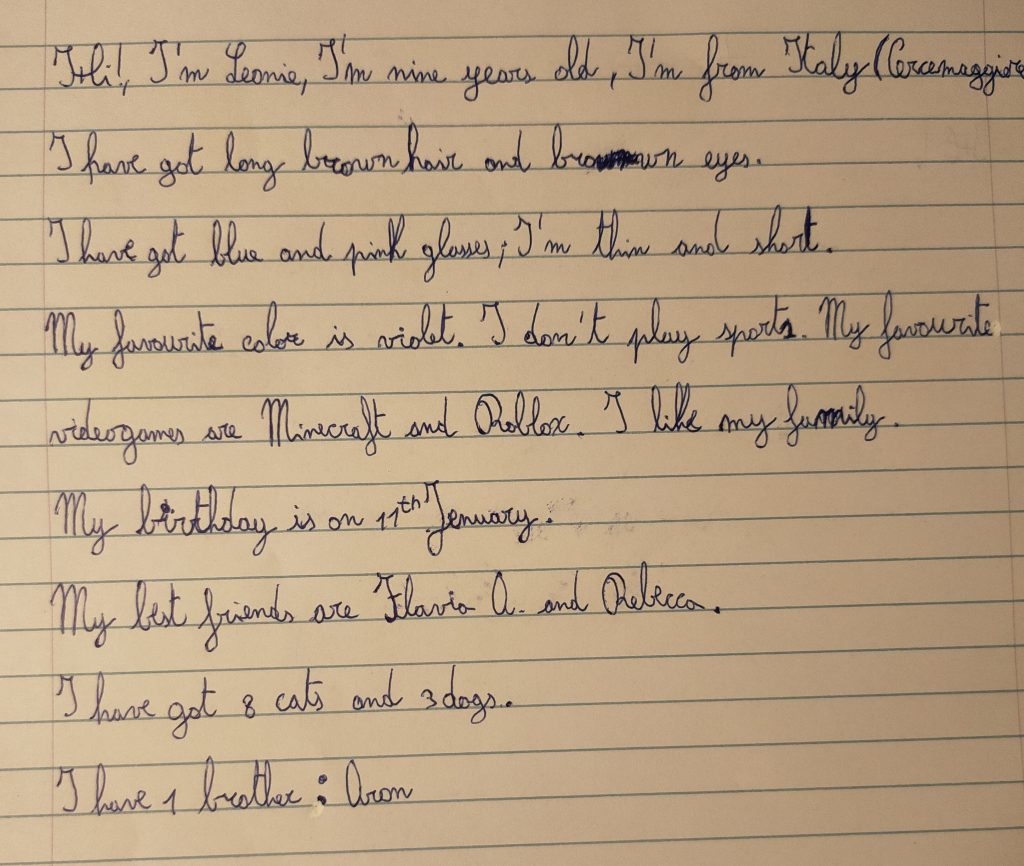 Hi!, I'm Leonie, I'm nine years old, I'm from Italy (Cercemaggiore
I have got long brown hair and brown eyes.
I have got blue and pink glasses; I'm thin and short.
My favourite color is violet. I don't play sports. My favourite
videogames are Minecraft and Roblox. I like my family.
My birthday is on 11th Jenuary.
My best friends are Flavia A. and Rebecca.
I have got 8 cats and 3 dogs.
I have 1 brother: Aron